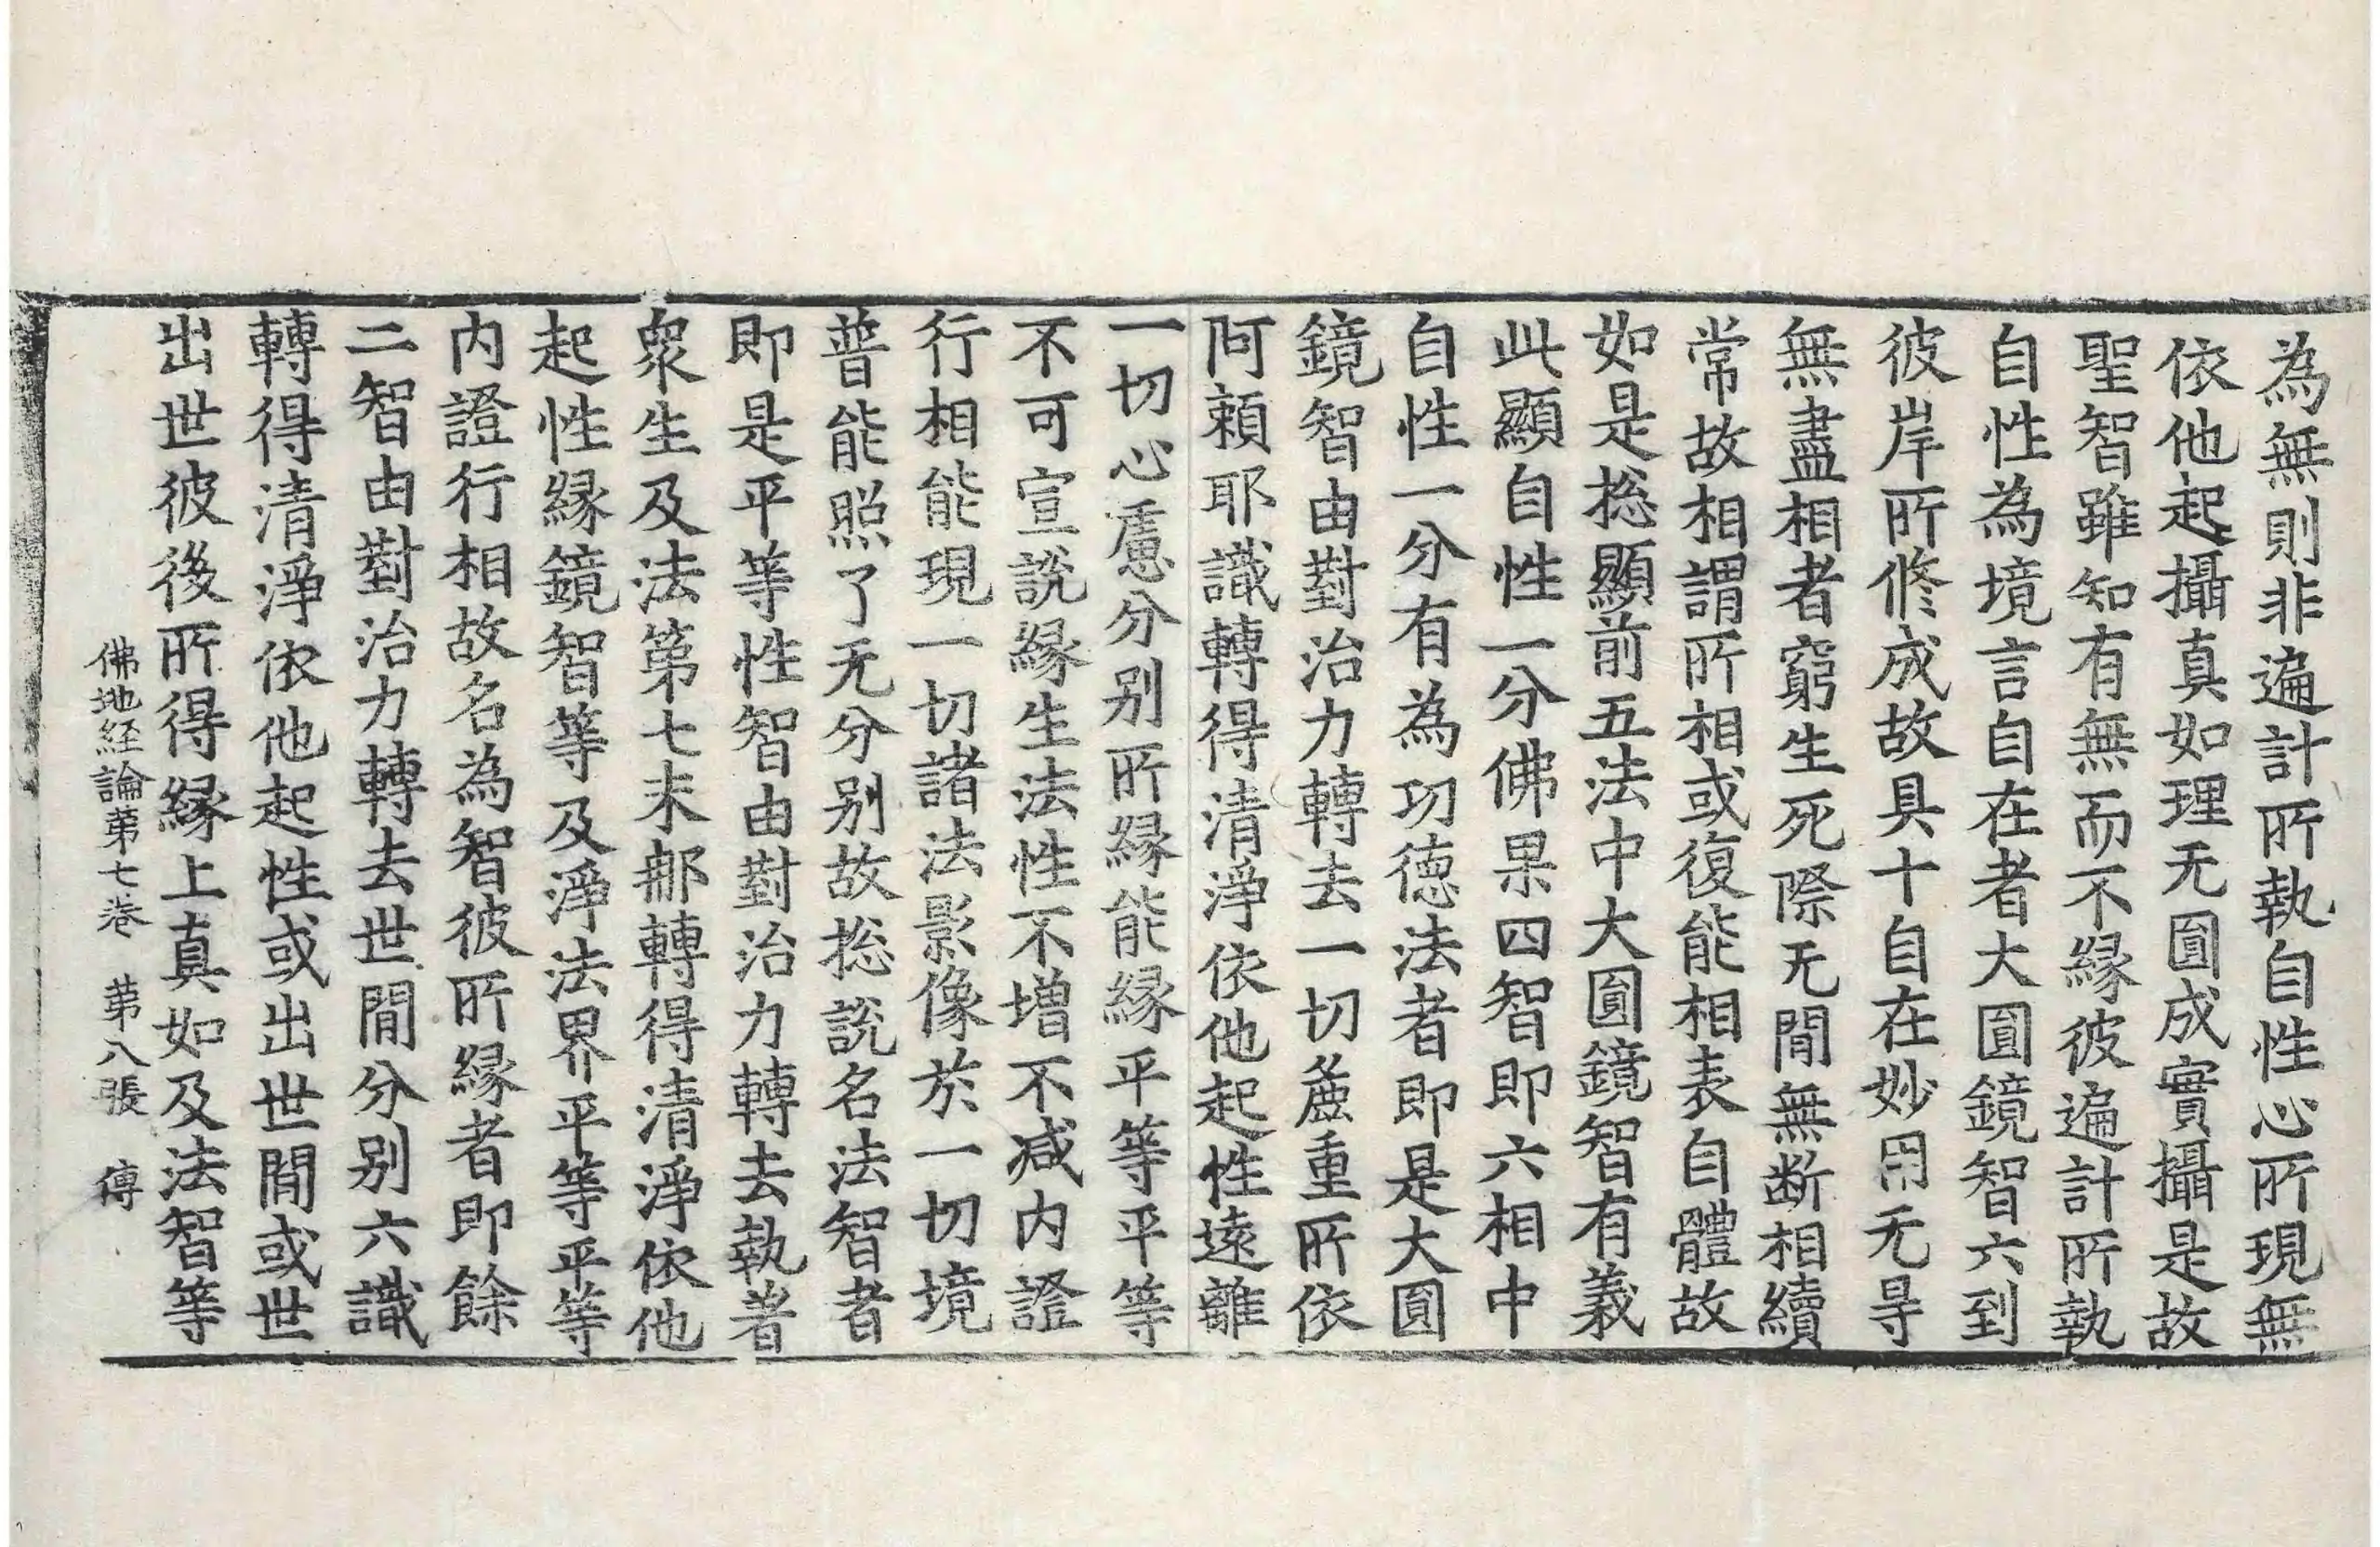 為無則非遍計所執自性心所現無
依他起攝真如理无圓成實攝是故
聖智雖知有無而不緣彼遍計所執
自性為境言自在者大圓鏡智六到
彼岸所修成故具十自在妙用无㝵
無盡相者窮生死際无間無断相續
常故相謂所相或復能相表自體故
如是揔顯前五法中大圓鏡智有義
此顯自性一分佛果四智即六相中
自性一分有為功德法者即是大圓
鏡智由對治力轉去一切麁重所依
阿頼耶識轉得清淨依他起性遠離
一切心慮分别所緣能緣平等平等
不可宣說緣生法性不增不减内證
行相能現一切諸法影像於一切境
普能照了无分别故揔說名法智者
即是平等性智由對治力轉去執著
衆生及法第七末那轉得清淨依他
起性緣鏡智等及淨法界平等平等
内證行相故名為智彼所緣者即餘
二智由對治力轉去世間分别六識
轉得清淨依他起性或出世間或世
出世彼後所得緣上真如及法智等
佛地経論苐七卷　苐八張　傳